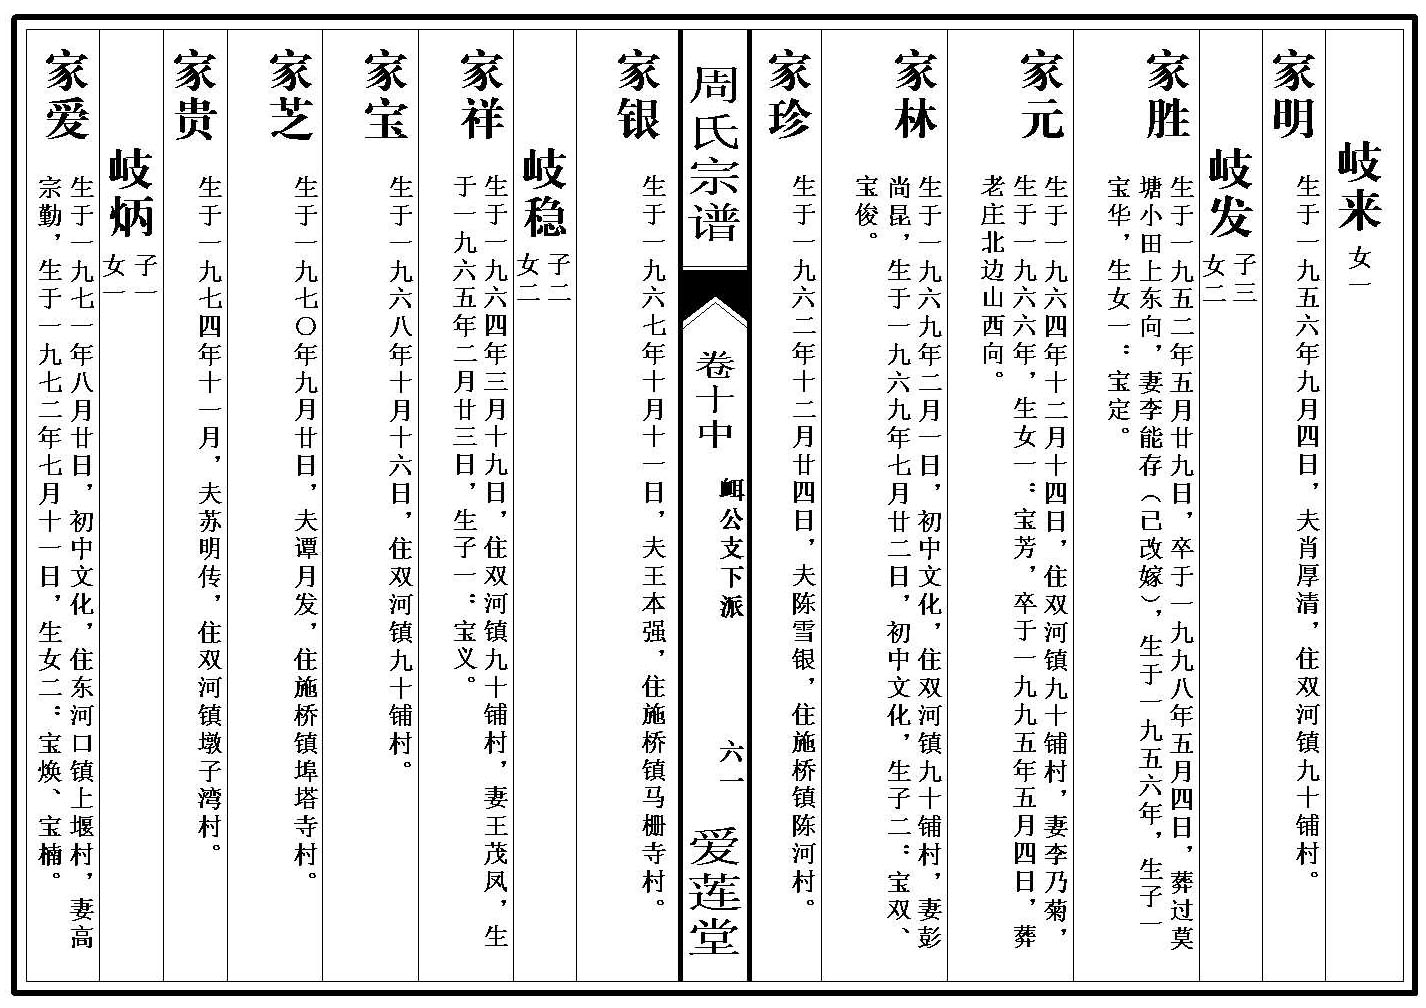 岐来
女一
家明
生于一九五六年九月四日，夫肖厚清，住双河镇九十铺村。
岐发
子三
女二
家胜
生于一九五二年五月廿九日，卒于一九九八年五月四日，葬过莫
塘小田上东向，妻李能存（已改嫁），生于一九五六年，生子一
宝华，生女一：宝定。
家元
生于一九六四年十二月十四日，住双河镇九十铺村，妻李乃菊，
生于一九六六年，生女一：宝芳，卒于一九九五年五月四日，葬
老庄北边山西向。
家林
生于一九六九年二月一日，初中文化，住双河镇九十铺村，妻彭
尚昆，生于一九六九年七月廿二日，初中文化，生子二：宝双、
宝俊。
家珍
生于一九六二年十二月廿四日，夫陈雪银，住施桥镇陈河村。
周氏宗谱
卷十中
峏公支下派
六一
爱莲堂
家银
生于一九六七年十月十一日，夫王本强，住施桥镇马栅寺村。
岐稳
子二
女二
家祥
生于一九六四年三月十九日，住双河镇九十铺村，妻王茂凤，生
于一九六五年二月廿三日，生子一：宝义。
家宝
生于一九六八年十月十六日，住双河镇九十铺村。
家芝
生于一九七〇年九月廿日，夫谭月发，住施桥镇埠塔寺村。
家贵
生于一九七四年十一月，夫苏明传，住双河镇墩子湾村。
岐炳
子一
女一
家爱
生于一九七一年八月廿日，初中文化，住东河口镇上堰村，妻高
宗勤，生于一九七二年七月十一日，生女二：宝焕、宝楠。